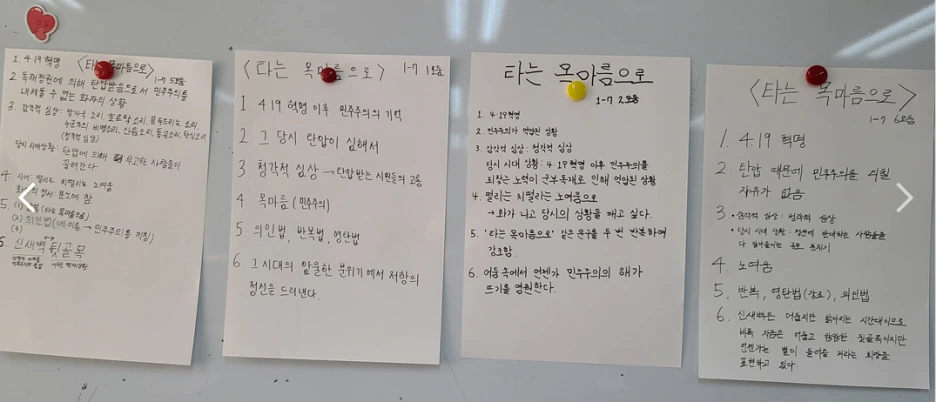 <타는 목마름으로>
1-7 5모둠
1. 4·19 혁명
2. 독재정권에 의해 탄압받음으로서 민주주의를
내세울 수 없는 화자의 상황
3. 감각적 심상: 발자국 소리, 호르락 소리, 문두드리는 소리,
누군가의 비명소리, 신음소리, 통곡소리, 탄식소리
(청각적 심상)
당시 시대상황: 탄압에 의해 무고한 사람들이
끌려간다.
4. 시어: 떨리는 치떨리는 노여움
정서: 분노에 참.
5. (1) 반복 (타는 목마름으로)
(2) 의인법 (네 이름 → 민주주의를 지칭)
(3)
6. 신새벽 ↔ 뒷골목
<타는 목마름으로> 1-7 1모둠
1 4·19 혁명 이후 민주주의의 기억
2 그 당시 탄압이 심해서
3 청각적 심상 → 탄압받는 시민들의 고통
4 목마름 (민주주의)
5 의인법, 반복법, 영탄법
6. 그 시대의 암울한 분위기에서 저항의
정신을 드러낸다.
타는 목마름으로
1-7 2모둠
1. 4·19혁명
2. 민주주의가 억압된 상황
3 감각적 심상: 청각적 심상
당시 시대 상황: 4·19혁명 이후 민주주의를
되찾는 노력이 군부독재로 인해 억압된 상황
4. 떨리는 치떨리는 노여움으로
→ 화가 나고 당시의 상황을 깨고 싶다.
5. '타는 목마름으로' 같은 문구를 두 번 반복하여
강조함.
6. 어둠 속에서 언젠가 민주주의의 해가
뜨기를 염원한다.
<타는 목마름으로>
1-7 6모둠
1. 4·19 혁명
2. 탄압 때문에 민주주의를 외칠
자유가 없음
3. • 감각적 심상: 청각적 심상
• 당시 시대 상황: 정권에 반대하는 사람들을
다 잡아들이는 공포 분위기
4. 노여움
5. 반복, 영탄법(강조), 의인법
6. 신새벽은 어둡지만 밝아지는 시간대이므로
비록 지금은 어둡고 캄캄한 뒷골목이지만
언젠가는 볕이 들어올 거라는 희망을
표현하고 있다.